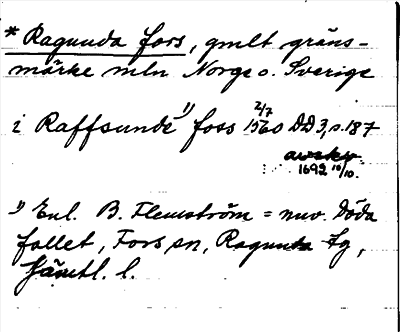 * Ragunda fors, gmlt gräns-
märke mln Norge o. Sverige
i Raffsunde 1) foss 2/7 1560 DD 3, s. 187
avskr.
1692 10/10.
1) Enl. B. Flemström = nuv. Döda
fallet, Fors sn, Ragunda tg,
Jämtl. l.